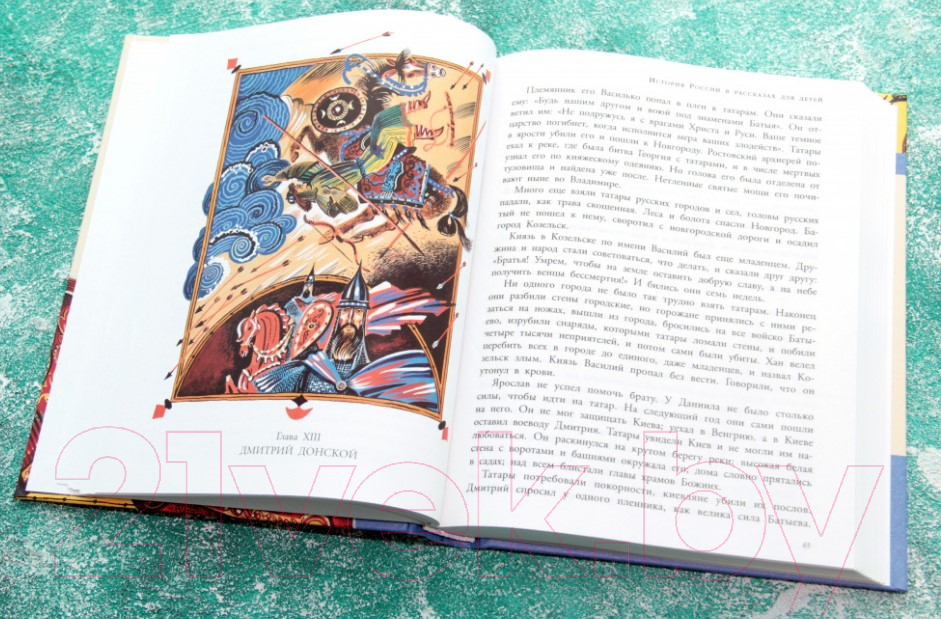 Глава XIII
ДМИТРИЙ ДОНСКОЙ
История России в рассказах для детей
Племянник его Василько попал в плен к татарам. Они сказали
ему: «Будь нашим другом и воюй под знаменами Батыя». Он от-
ветил им: «Не подружусь я с врагами Христа и Руси. Ваше темное
царство погибнет, когда исполнится мера ваших злодейств». Татары
в ярости убили его и пошли к Новгороду. Ростовский архиерей по-
ехал к реке, где была битва Георгия с татарами, и в числе мертвых
узнал его по княжескому одеянию. Но голова его была отделена от
туловища и найдена уже после. Нетленные святые мощи его почи-
вают ныне во Владимире.
Много еще взяли татары русских городов и сел, головы русских
падали, как трава скошенная. Леса и болота спасли Новгород. Ба-
тый не пошел к нему, своротил с новгородской дороги и осадил
город Козельск.
Князь в Козельске по имени Василий был еще младенцем. Дру-
жина и народ стали советоваться, что делать, и сказали друг другу:
«Братья! Умрем, чтобы на земле оставить добрую славу, а на небе
получить венцы бессмертия!» И бились они семь недель.
Ни одного города не было так трудно взять татарам. Наконец
они разбили стены городские, но горожане принялись с ними ре-
заться на ножах, вышли из города, бросились на все войско Баты-
ево, изрубили снаряды, которыми татары ломали стены, и побили
четыре тысячи неприятелей, и потом сами были убиты. Хан велел
перебить всех в городе до единого, даже младенцев, и назвал Ко-
зельск злым. Князь Василий пропал без вести. Говорили, что он
утонул в крови.
Ярослав не успел помочь брату. У Даниила не было столько
силы, чтобы идти на татар. На следующий год они сами пошли
на него. Он не мог защищать Киева; уехал в Венгрию, а в Киеве
оставил воеводу Дмитрия. Татары увидели Киев и не могли им на-
любоваться. Он раскинулся на крутом берегу реки; высокая белая
стена с воротами и башнями окружала его, дома словно прятались
в садах; над всем блистали главы храмов Божиих.
Татары потребовали покорности, киевляне убили их послов.
Дмитрий спросил у одного пленника, как велика сила Батыева.
45
21vek.by